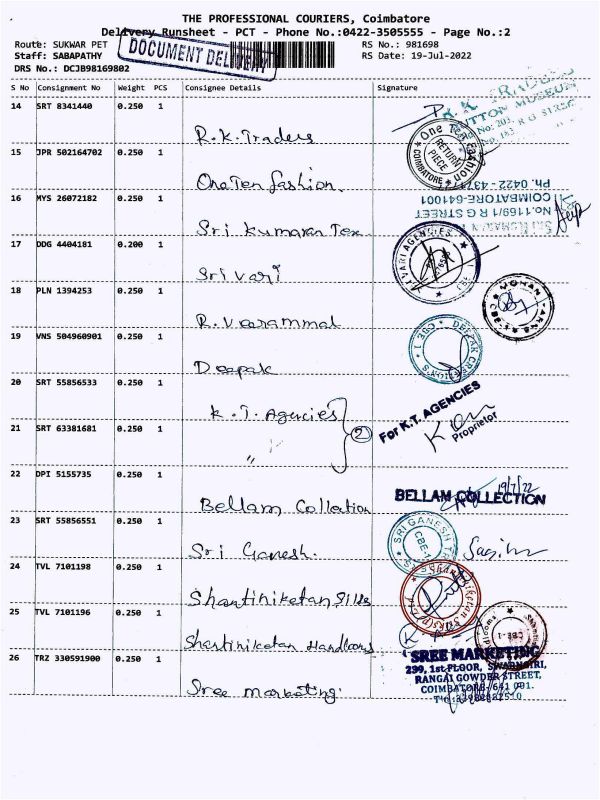 THE PROFESSIONAL COURIERS, Coimbatore
Delivery Runsheet - PCT - Phone No.:0422-3505555 - Page No.:2
Route: SUKWAR PET
RS No.: 981698
Staff: SABAPATHY
RS Date: 19-Jul-2022
DRS No.: DCJB98169802
DOCUMENT DELIVERY
S No Consignment No Weight PCS Consignee Details Signature
14 SRT 8341440 0.250 1 R.K.Traders
15 JPR 502164702 0.250 1 OneTen fashion.
16 MYS 26072182 0.250 1 Sri Kumaran Tex
17 DDG 4404181 0.200 1 Sri vari
18 PLN 1394253 0.250 1 R. Veerammal
19 VNS 504960901 0.250 1 Deepak
20 SRT 55856533 0.250 1 K.T. Agencies
21 SRT 63381681 0.250 1 " 2
22 DPI 5155735 0.250 1 Bellam Collection
23 SRT 55856551 0.250 1 Sri Ganesh.
24 TVL 7101198 0.250 1 Shantiniketan Silks
25 TVL 7101196 0.250 1 Shantiniketan Handlooms
26 TRZ 330591900 0.250 1 Sree marketing.
R.K TRADERS
COTTON MUSEUM
One Ten Fashion
RETURN PIECE
COIMBATORE
Ph. 0422 -
COIMBATORE-641001
No.1169/1 R G STREET
VARI AGENCIES
MOHAN
DEEPAK CREATIONS
CBE-1
For K.T. AGENCIES
Proprietor
19/7/22
BELLAM COLLECTION
SRI GANESH
CBE-1
Shantiniketan
SREE MARKETING
299, 1st FLOOR, SWARNGIRI,
RANGAI GOWDER STREET,
COIMBATORE-641 001.